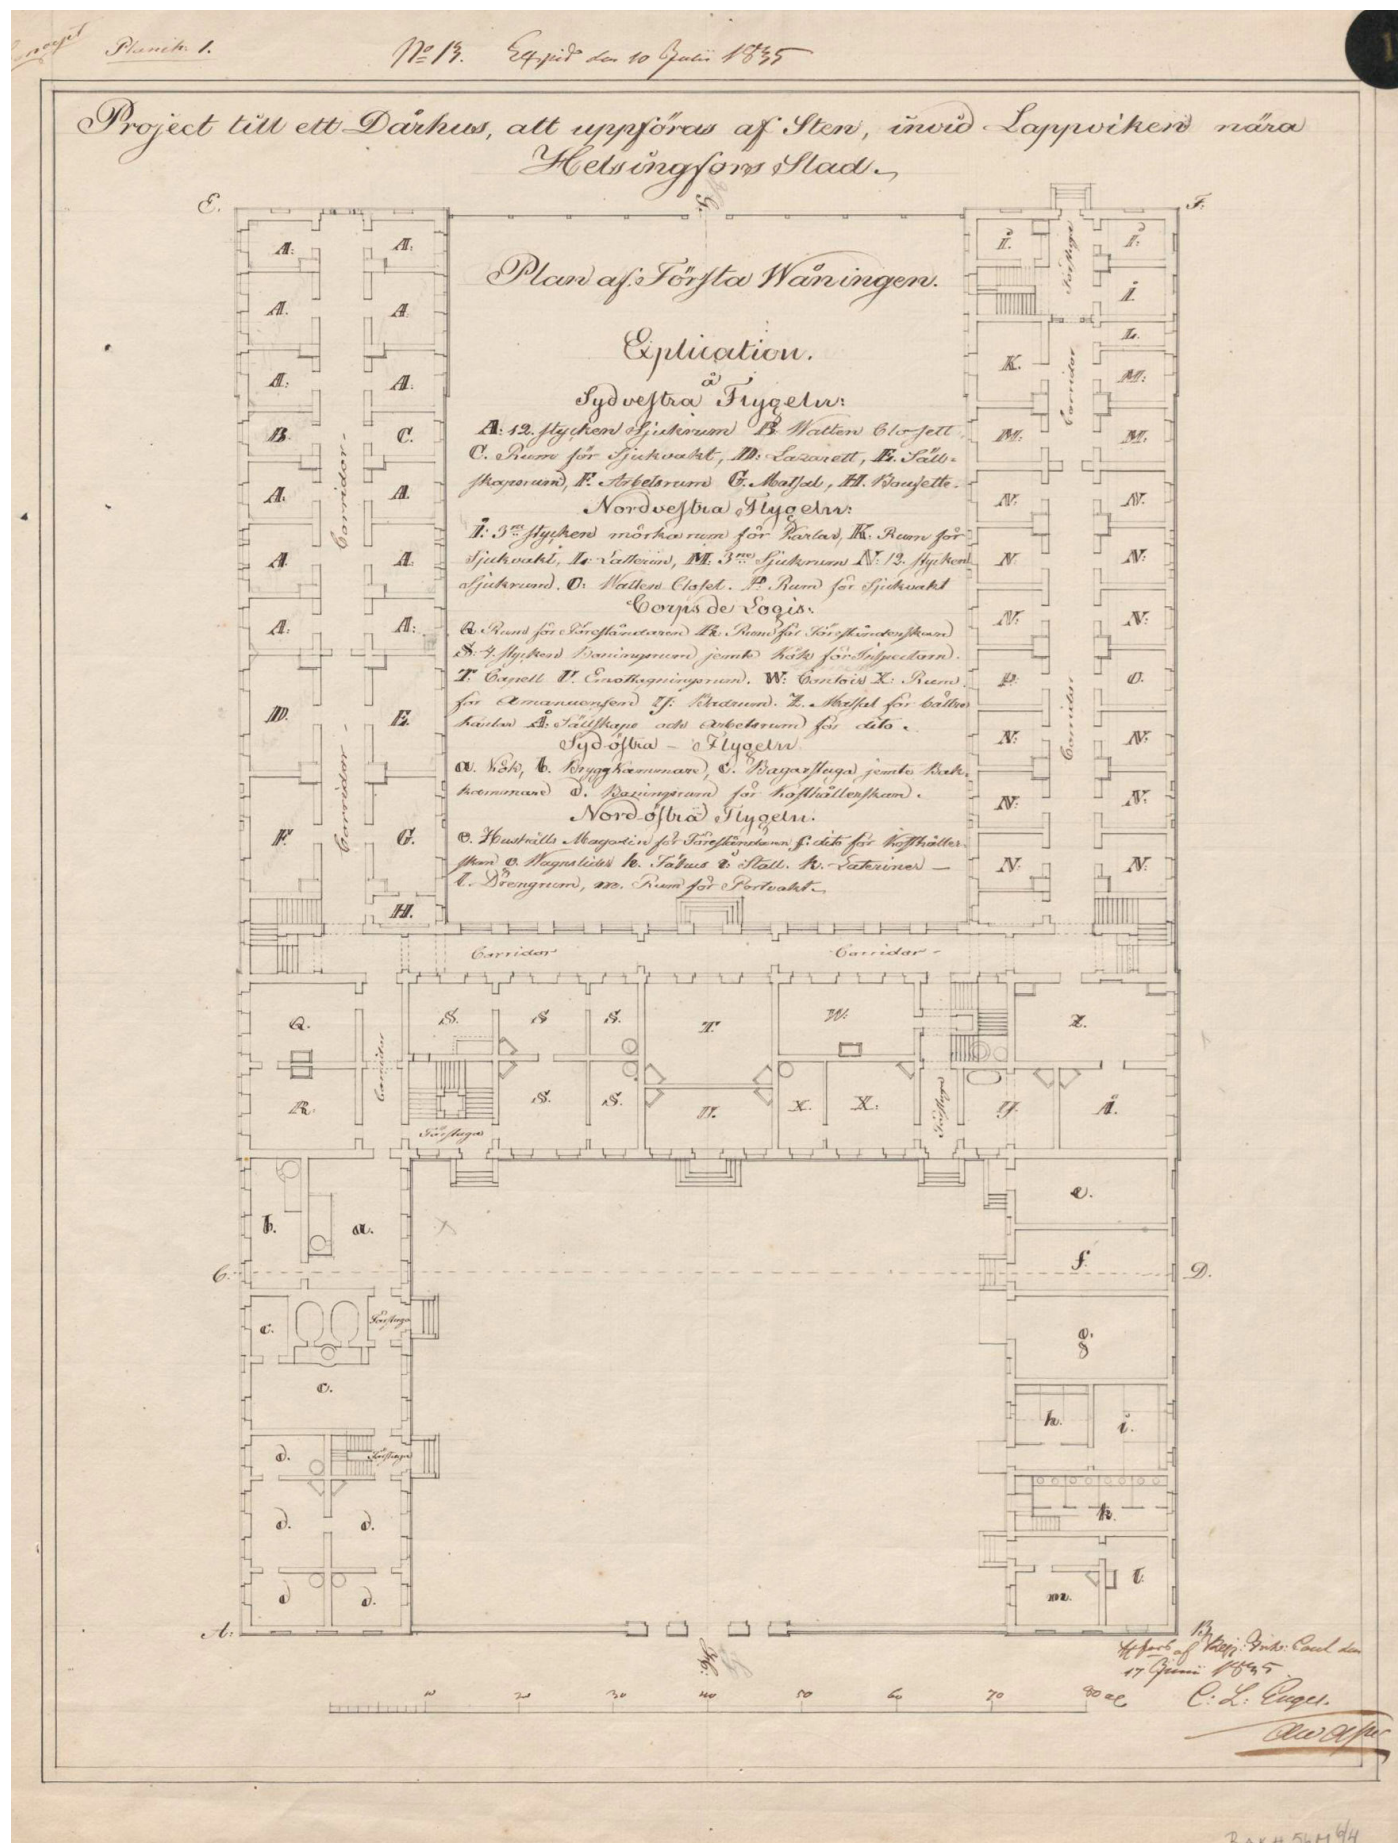 Concept
Planch. 1.
No 13. Exped den 10 Julii 1835
Project till ett Dårhus, att uppföras af Sten, invid Lappviken nära
Helsingfors Stad.
E.
F.
Plan af Första Wåningen.
Explication.
å
Sydvestra Flygeln:
A: 12. stycken Sjukrum B. Watten Closett
C. Rum för Sjukvakt, D: Lazarett, E. Säll-
skapsrum, F. Arbetsrum G. Matsal, H. Baufette.
Nordvestra Flygeln:
I: 3ne stycken mörka rum för Karlar, K: Rum för
Sjukvakt, L: Latterin, M: 3ne Sjukrum N: 12. stycken
Sjukrum. O: Watten Closet. P. Rum för Sjukvakt
Corps de Logis:
Q Rum för Föreståndaren R. Rum för Föreståndarskan
S: 4. stycken Boningsrum jemte Kök för Inspectorn.
T. Capell U. Emottagningsrum. W: Contoir X: Rum
för Amanuensen Y: Badrum. Z. Matsal för bättre
karlar Å: Sällskaps och Arbetsrum för dito.
Sydöstra - Flygeln
a. Kök, b. Bryggkammare, c. Bagarstuga jemte Bak-
kammare d. Boningsrum för Kosthållerskan.
Nordöstra Flygeln.
e. Hushålls Magasin för Föreståndaren f: dito för Kosthåller-
skan g. Wagnslider h. Fähus i. Stall. k. Lateriner —
l. Drengrum, m. Rum för Portvakt.
A: A.
A. A
A: A.
B. C.
A. A
A A.
A: A:
D. E.
F. G.
H.
Corridor
Corridor
I. I:
I.
Förstuga
K. L.
M:
M: M.
N: N.
N N:
N: N:
P: O.
N: N:
N: N:
N: N:
Corridor
Corridor
Corridor
Corridor
Q. S. S S. T. W. Z.
Corridor
R. S. S. U. X. X. Y. Å.
Förstuga
Förstuga
b. a. e.
C. f. D.
c. Förstuga g.
c. h. i.
d. Förstuga
d. d. k.
d d. m. l.
A:
10 20 30 40 50 60 70 80 al
17 Junii 1835
C: L: Engel.